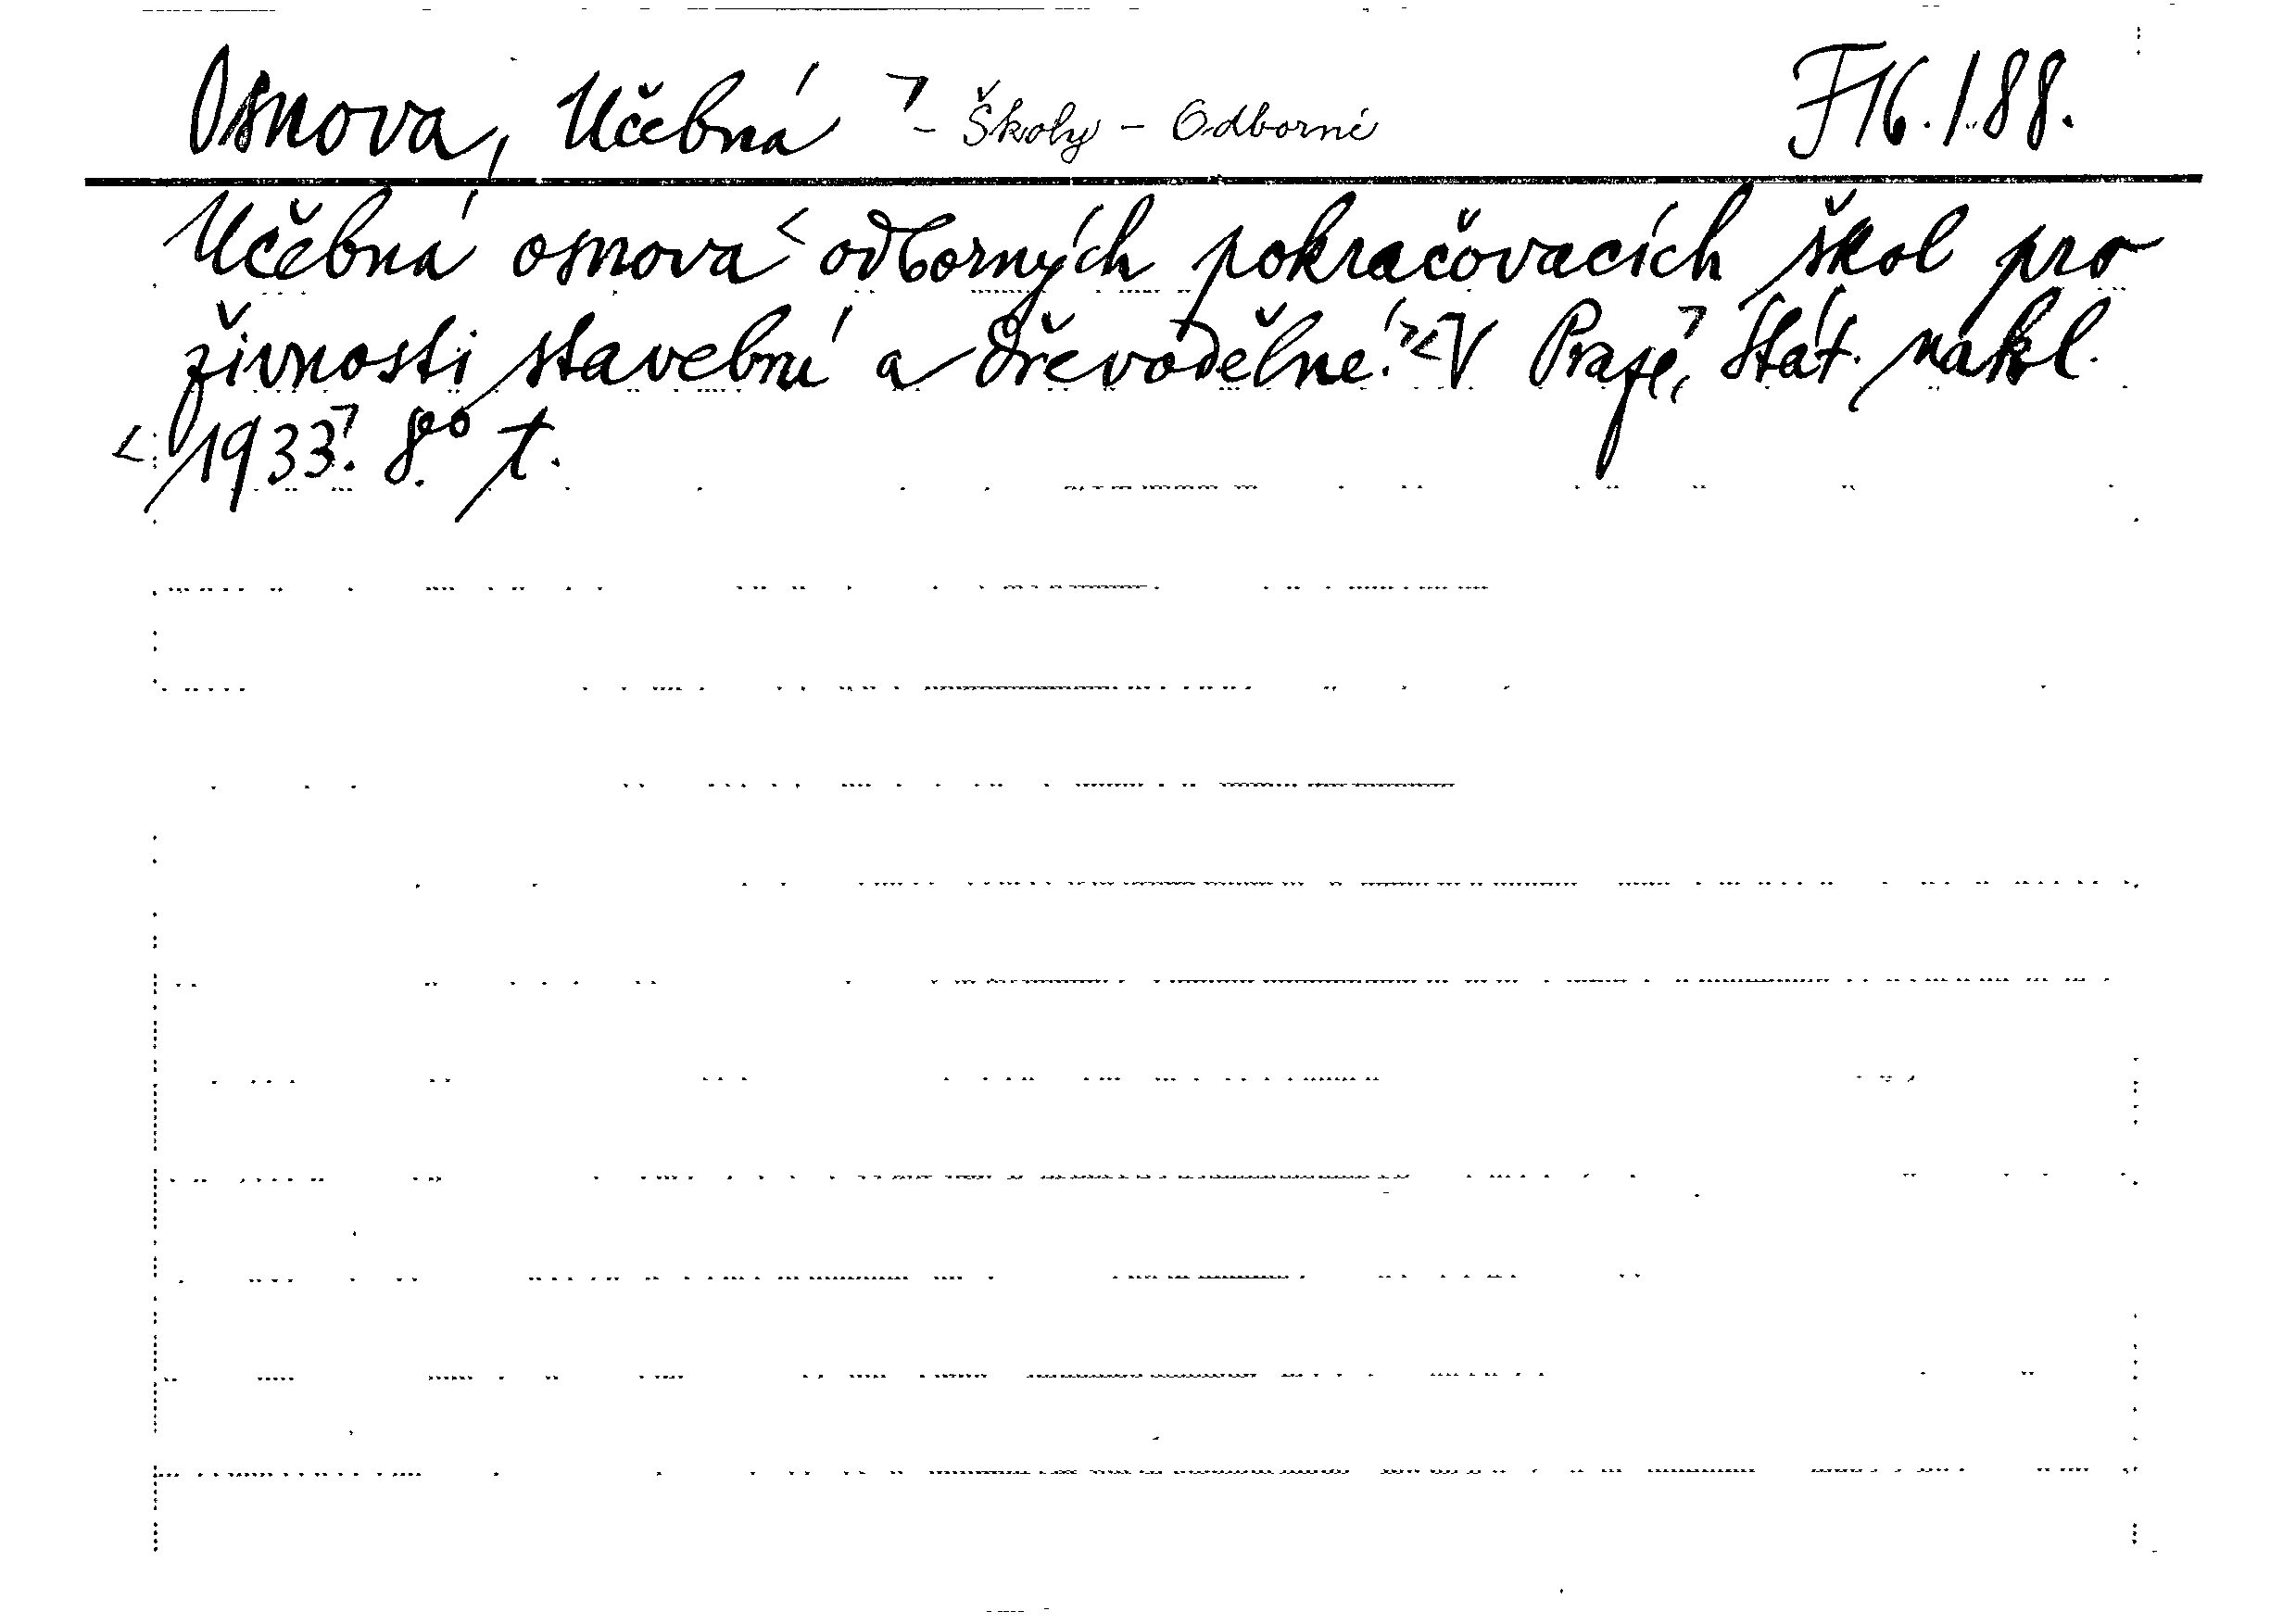 Osnova, Učebná ⌝ - Školy - Odborné F16.1.88.
Učebná osnova < odborných pokračovacích škol pro
živnosti stavební a dřevodělné.⌝ < V Praze,⌝ Stát. nakl.
< 1933.⌝ 8.º t.